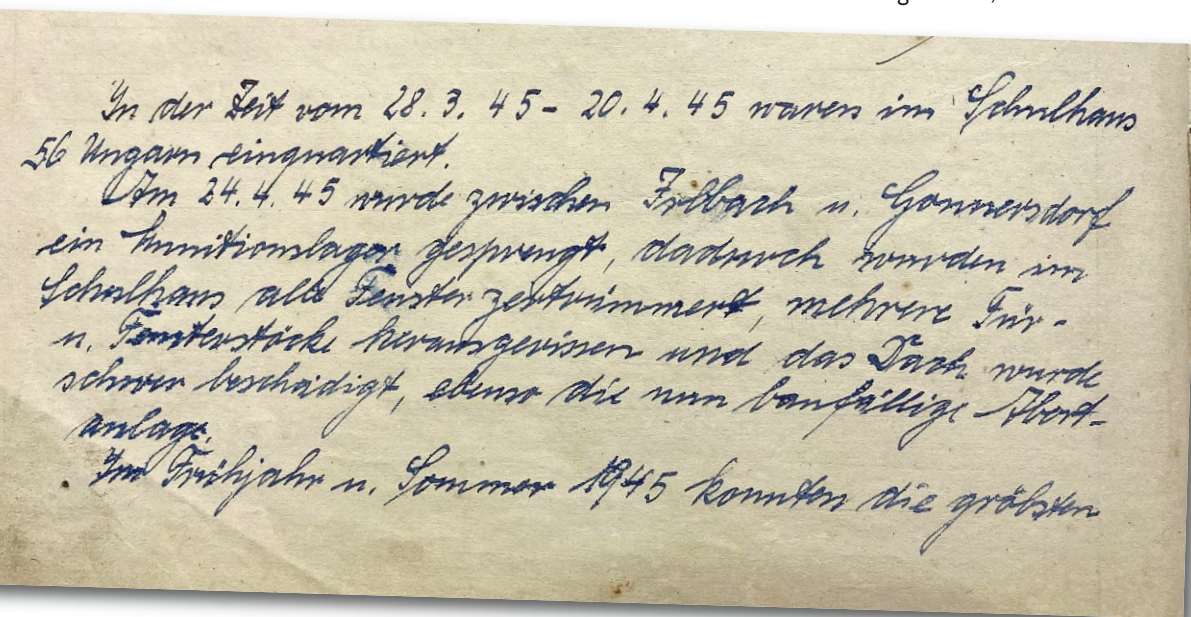 In der Zeit vom 28.3.45 - 20.4.45 waren im Schulhaus
56 Ungarn einquartiert.
Am 24.4.45 wurde zwischen Irlbach u. Gonnersdorf
ein Munitionslager gesprengt, dadurch wurden im
Schulhaus alle Fenster zertrümmert, mehrere Tür-
u. Fensterstöcke herausgerissen und das Dach wurde
schwer beschädigt, ebenso die nun baufällige Abort-
anlage.
Im Frühjahr u. Sommer 1945 konnten die gröbsten